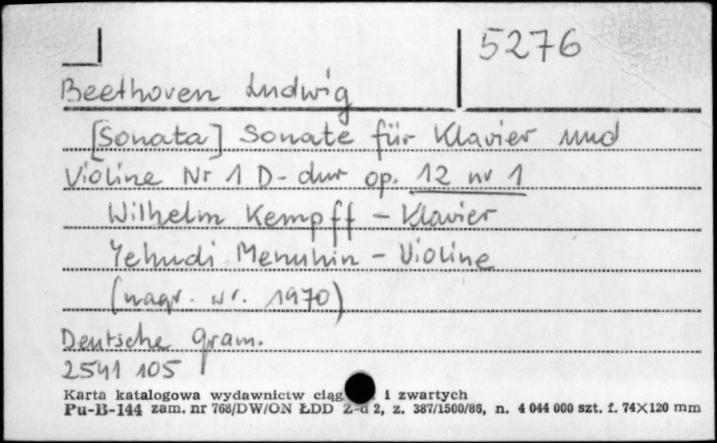 5276
Beethoven Ludwig
[Sonata] Sonate für Klavier und
Violine Nr 1 D-dur op. 12 nr 1
Wilhelm Kempff - Klavier
Yehudi Menuhin - Violine
(nagr. w r. 1970)
Deutsche Gram.
2541 105
Karta katalogowa wydawnictw ciąg i zwartych
Pu-B-144 zam. nr 768/DW/ON ŁDD Z-d 2, z. 387/1500/85, n. 4 044 000 szt. f. 74×120 mm